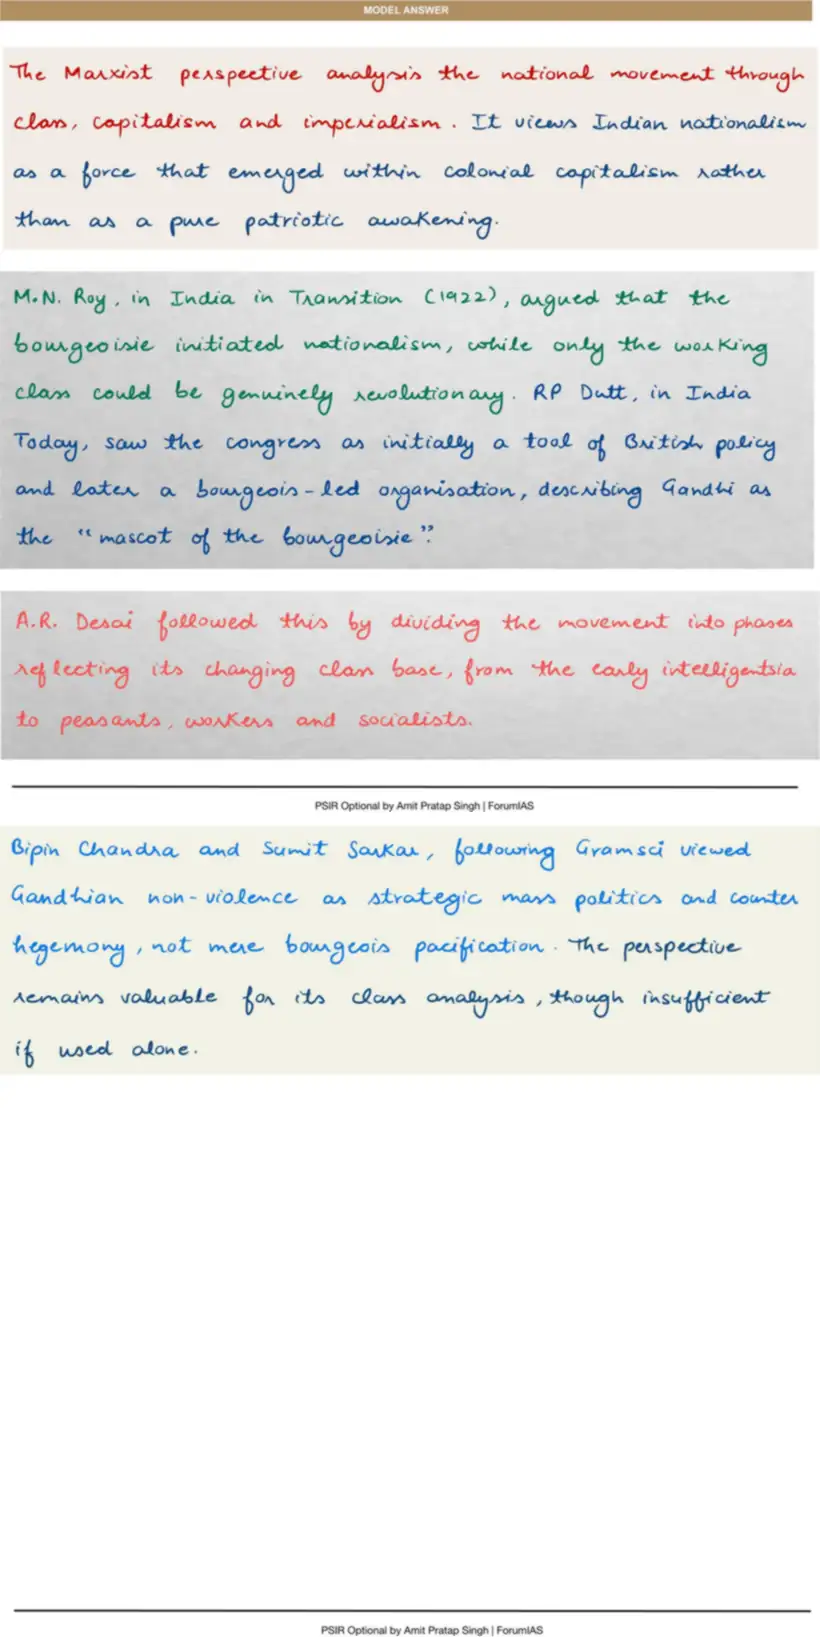 MODEL ANSWER
The Marxist perspective analysis the national movement through
class, capitalism and imperialism. It views Indian nationalism
as a force that emerged within colonial capitalism rather
than as a pure patriotic awakening.
M.N. Roy, in India in Transition (1922), argued that the
bourgeoisie initiated nationalism, while only the working
class could be genuinely revolutionary. RP Dutt, in India
Today, saw the congress as initially a tool of British policy
and later a bourgeois-led organisation, describing Gandhi as
the "mascot of the bourgeoisie".
A.R. Desai followed this by dividing the movement into phases
reflecting its changing class base, from the early intelligentsia
to peasants, workers and socialists.
PSIR Optional by Amit Pratap Singh | ForumIAS
Bipin Chandra and Sumit Sarkar, following Gramsci viewed
Gandhian non-violence as strategic mass politics and counter
hegemony, not mere bourgeois pacification. The perspective
remains valuable for its class analysis, though insufficient
if used alone.
PSIR Optional by Amit Pratap Singh | ForumIAS